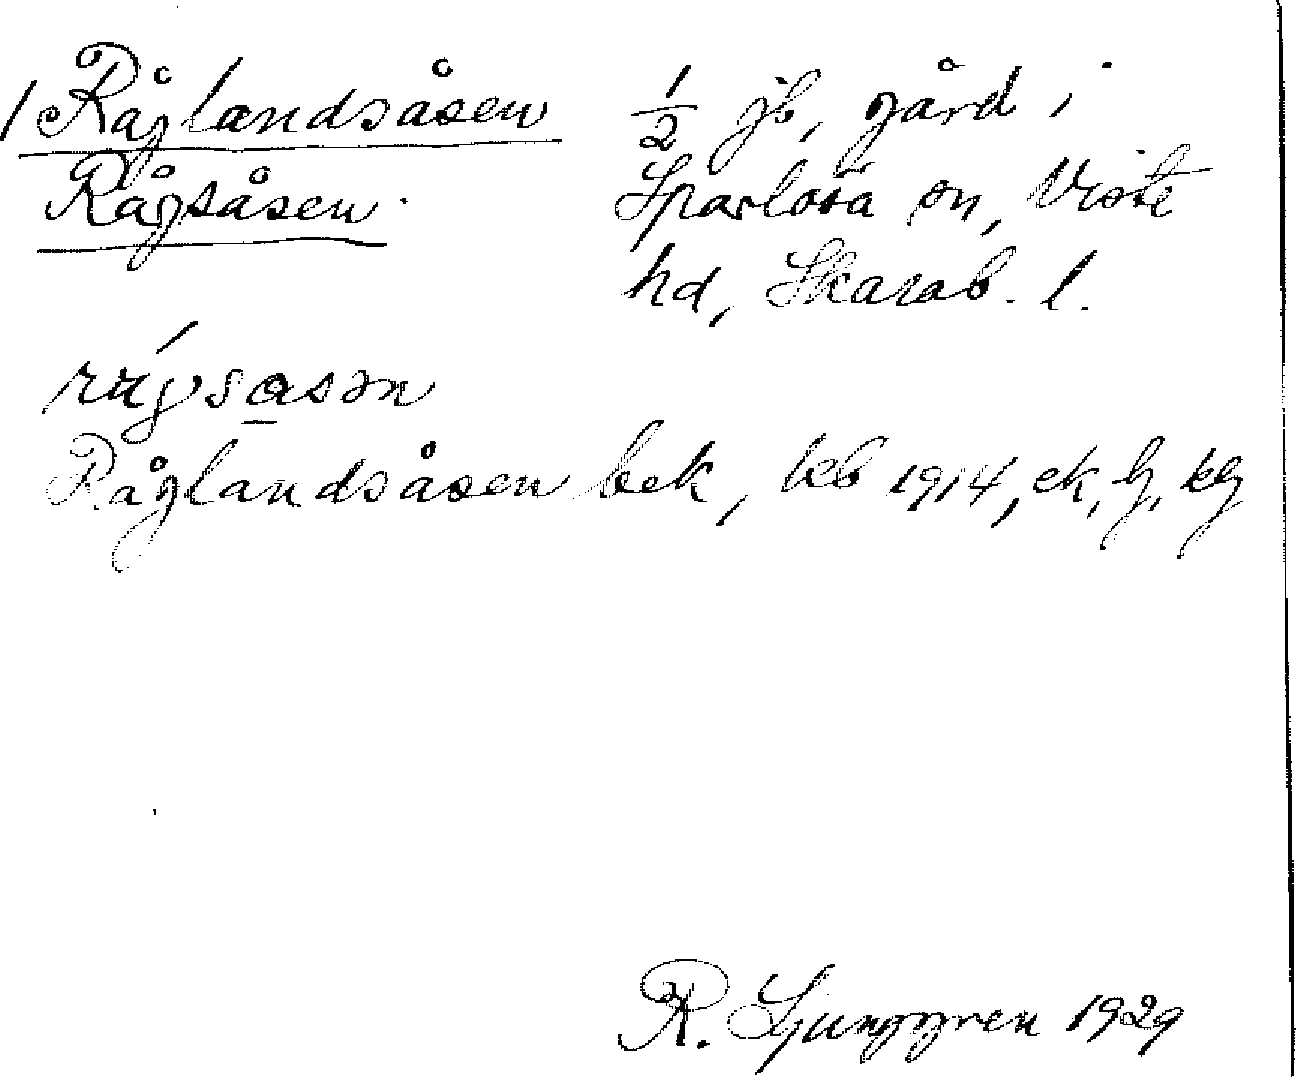 1 Råglandsåsen
Rågsåsen.
1/2 jb, gård i
Sparlösa sn, Viste
hd, Skarab. l.
rúgsasən
Råglandsåsen bek, kb 1914, ek, hj, kg
R. Ljunggren 1929